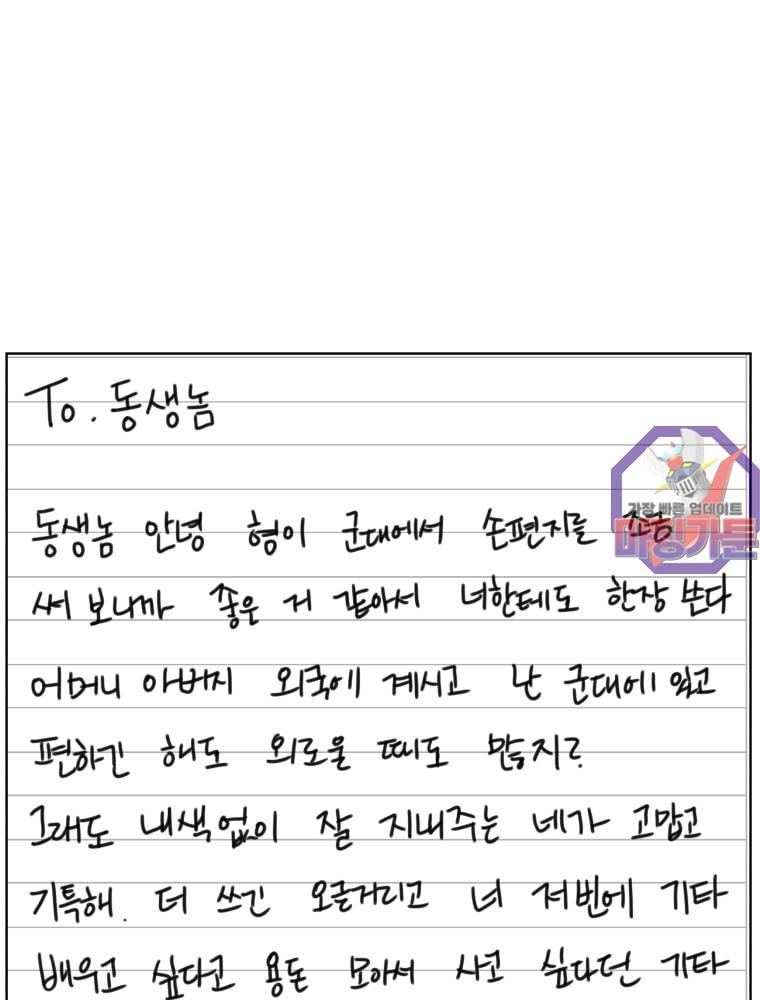 To. 동생놈
동생놈 안녕 형이 군대에서 손편지를 조금
가장 빠른 업데이트
마징가툰
써 보니까 좋은 거 같아서 너한테도 한장 쓴다
어머니 아버지 외국에 계시고 난 군대에 있고
편하긴 해도 외로울 때도 많지?
그래도 내색없이 잘 지내주는 네가 고맙고
기특해. 더 쓰긴 오글거리고 너 저번에 기타
배우고 싶다고 용돈 모아서 사고 싶다던 기타